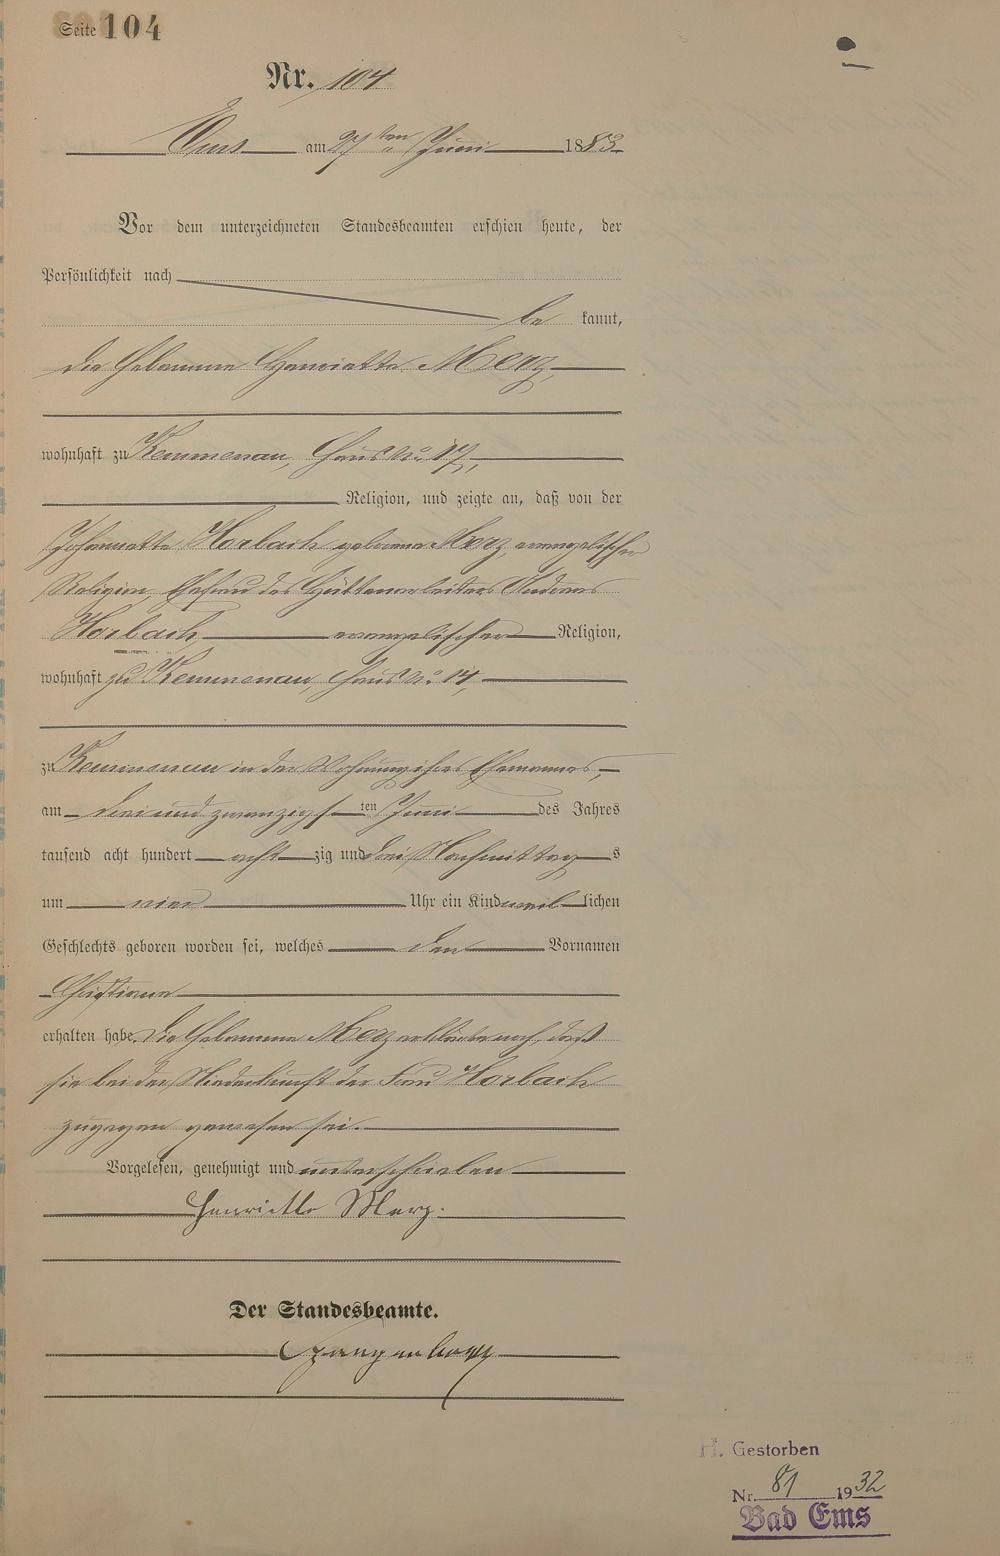 Seite 104
Nr. 104
Ems am 27ten Juni 1883
Vor dem unterzeichneten Standesbeamten erschien heute, der
Persönlichkeit nach
be kannt,
die Hebamme Henriette Merz,
wohnhaft zu Kemmenau, Haus No 17,
Religion, und zeigte an, daß von der
Johannette Horbach geborene Merz, evangelischer
Religion, Ehefrau des Hüttenarbeiters Andreas
Horbach, evangelischer Religion,
wohnhaft zu Kemmenau, Haus No 14,
zu Kemmenau in der Wohnung ihres Ehemannes,
am drei und zwanzigsten Juni des Jahres
tausend acht hundert acht zig und drei Nachmittags
um vier Uhr ein Kind weiblichen
Geschlechts geboren worden sei, welches den Vornamen
Christiane
erhalten habe. Die Hebamme Merz erklärte noch, daß
sie bei der Niederkunft der Frau Horbach
zugegen gewesen sei.
Vorgelesen, genehmigt und unterschrieben
Henriette Merz.
Der Standesbeamte.
H. Gestorben
Nr. 81 1932
Bad Ems